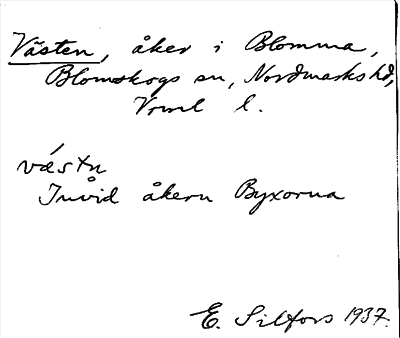 Västen, åker i Blomma,
Blomskogs sn, Nordmarks hd,
Vrml l.
västn
Invid åkern Byxorna
E. Silfors 1937.